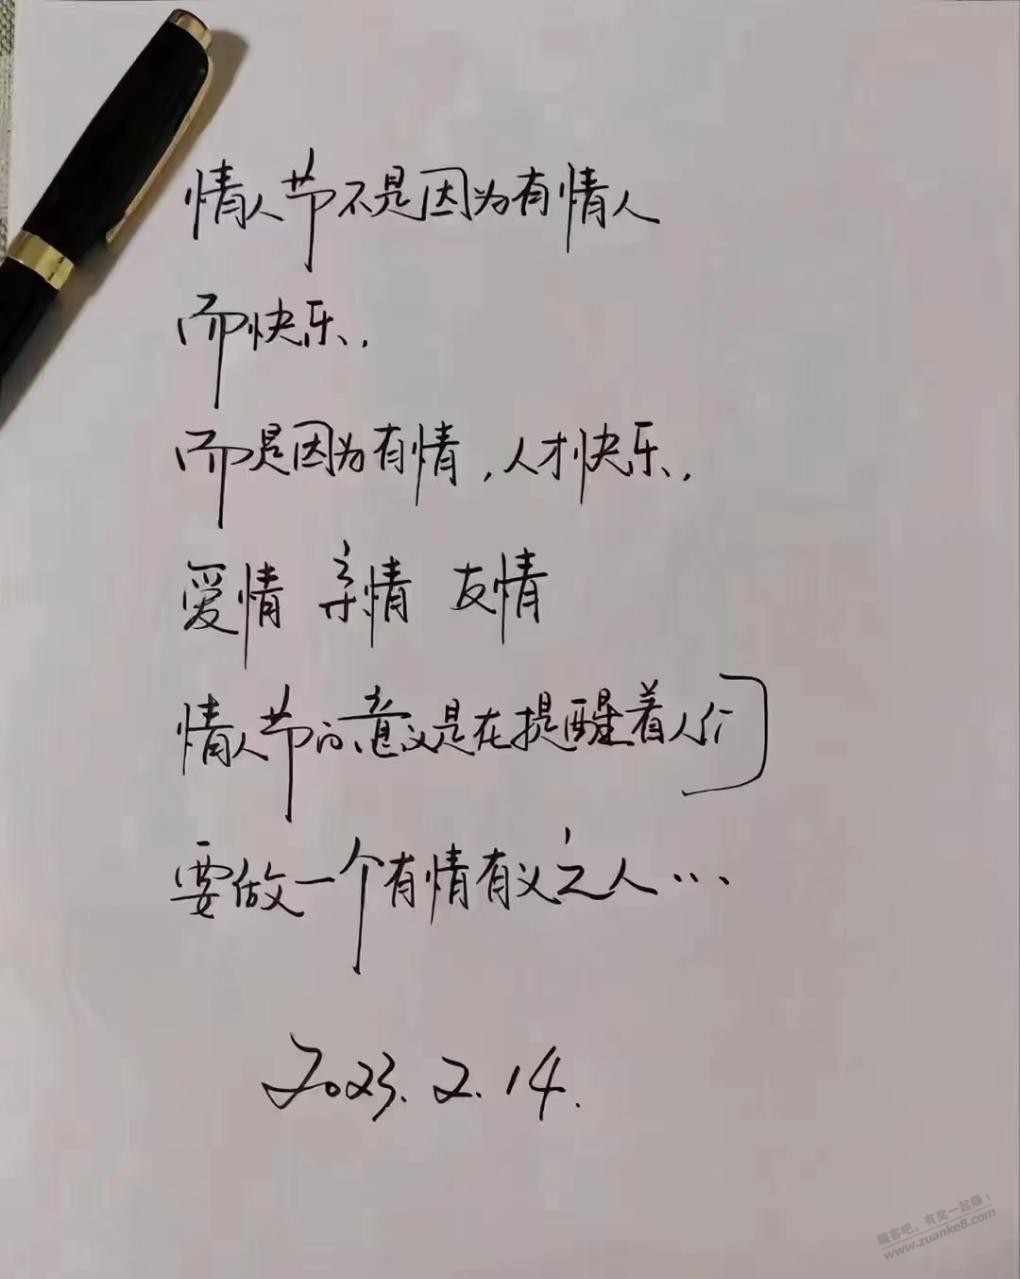 情人节不是因为有情人
而快乐.
而是因为有情,人才快乐.
爱情 亲情 友情
情人节的意义是在提醒着人们
要做一个有情有义之人…
2023.2.14.
赚客吧,有奖一起赚!
www.zuanke8.com